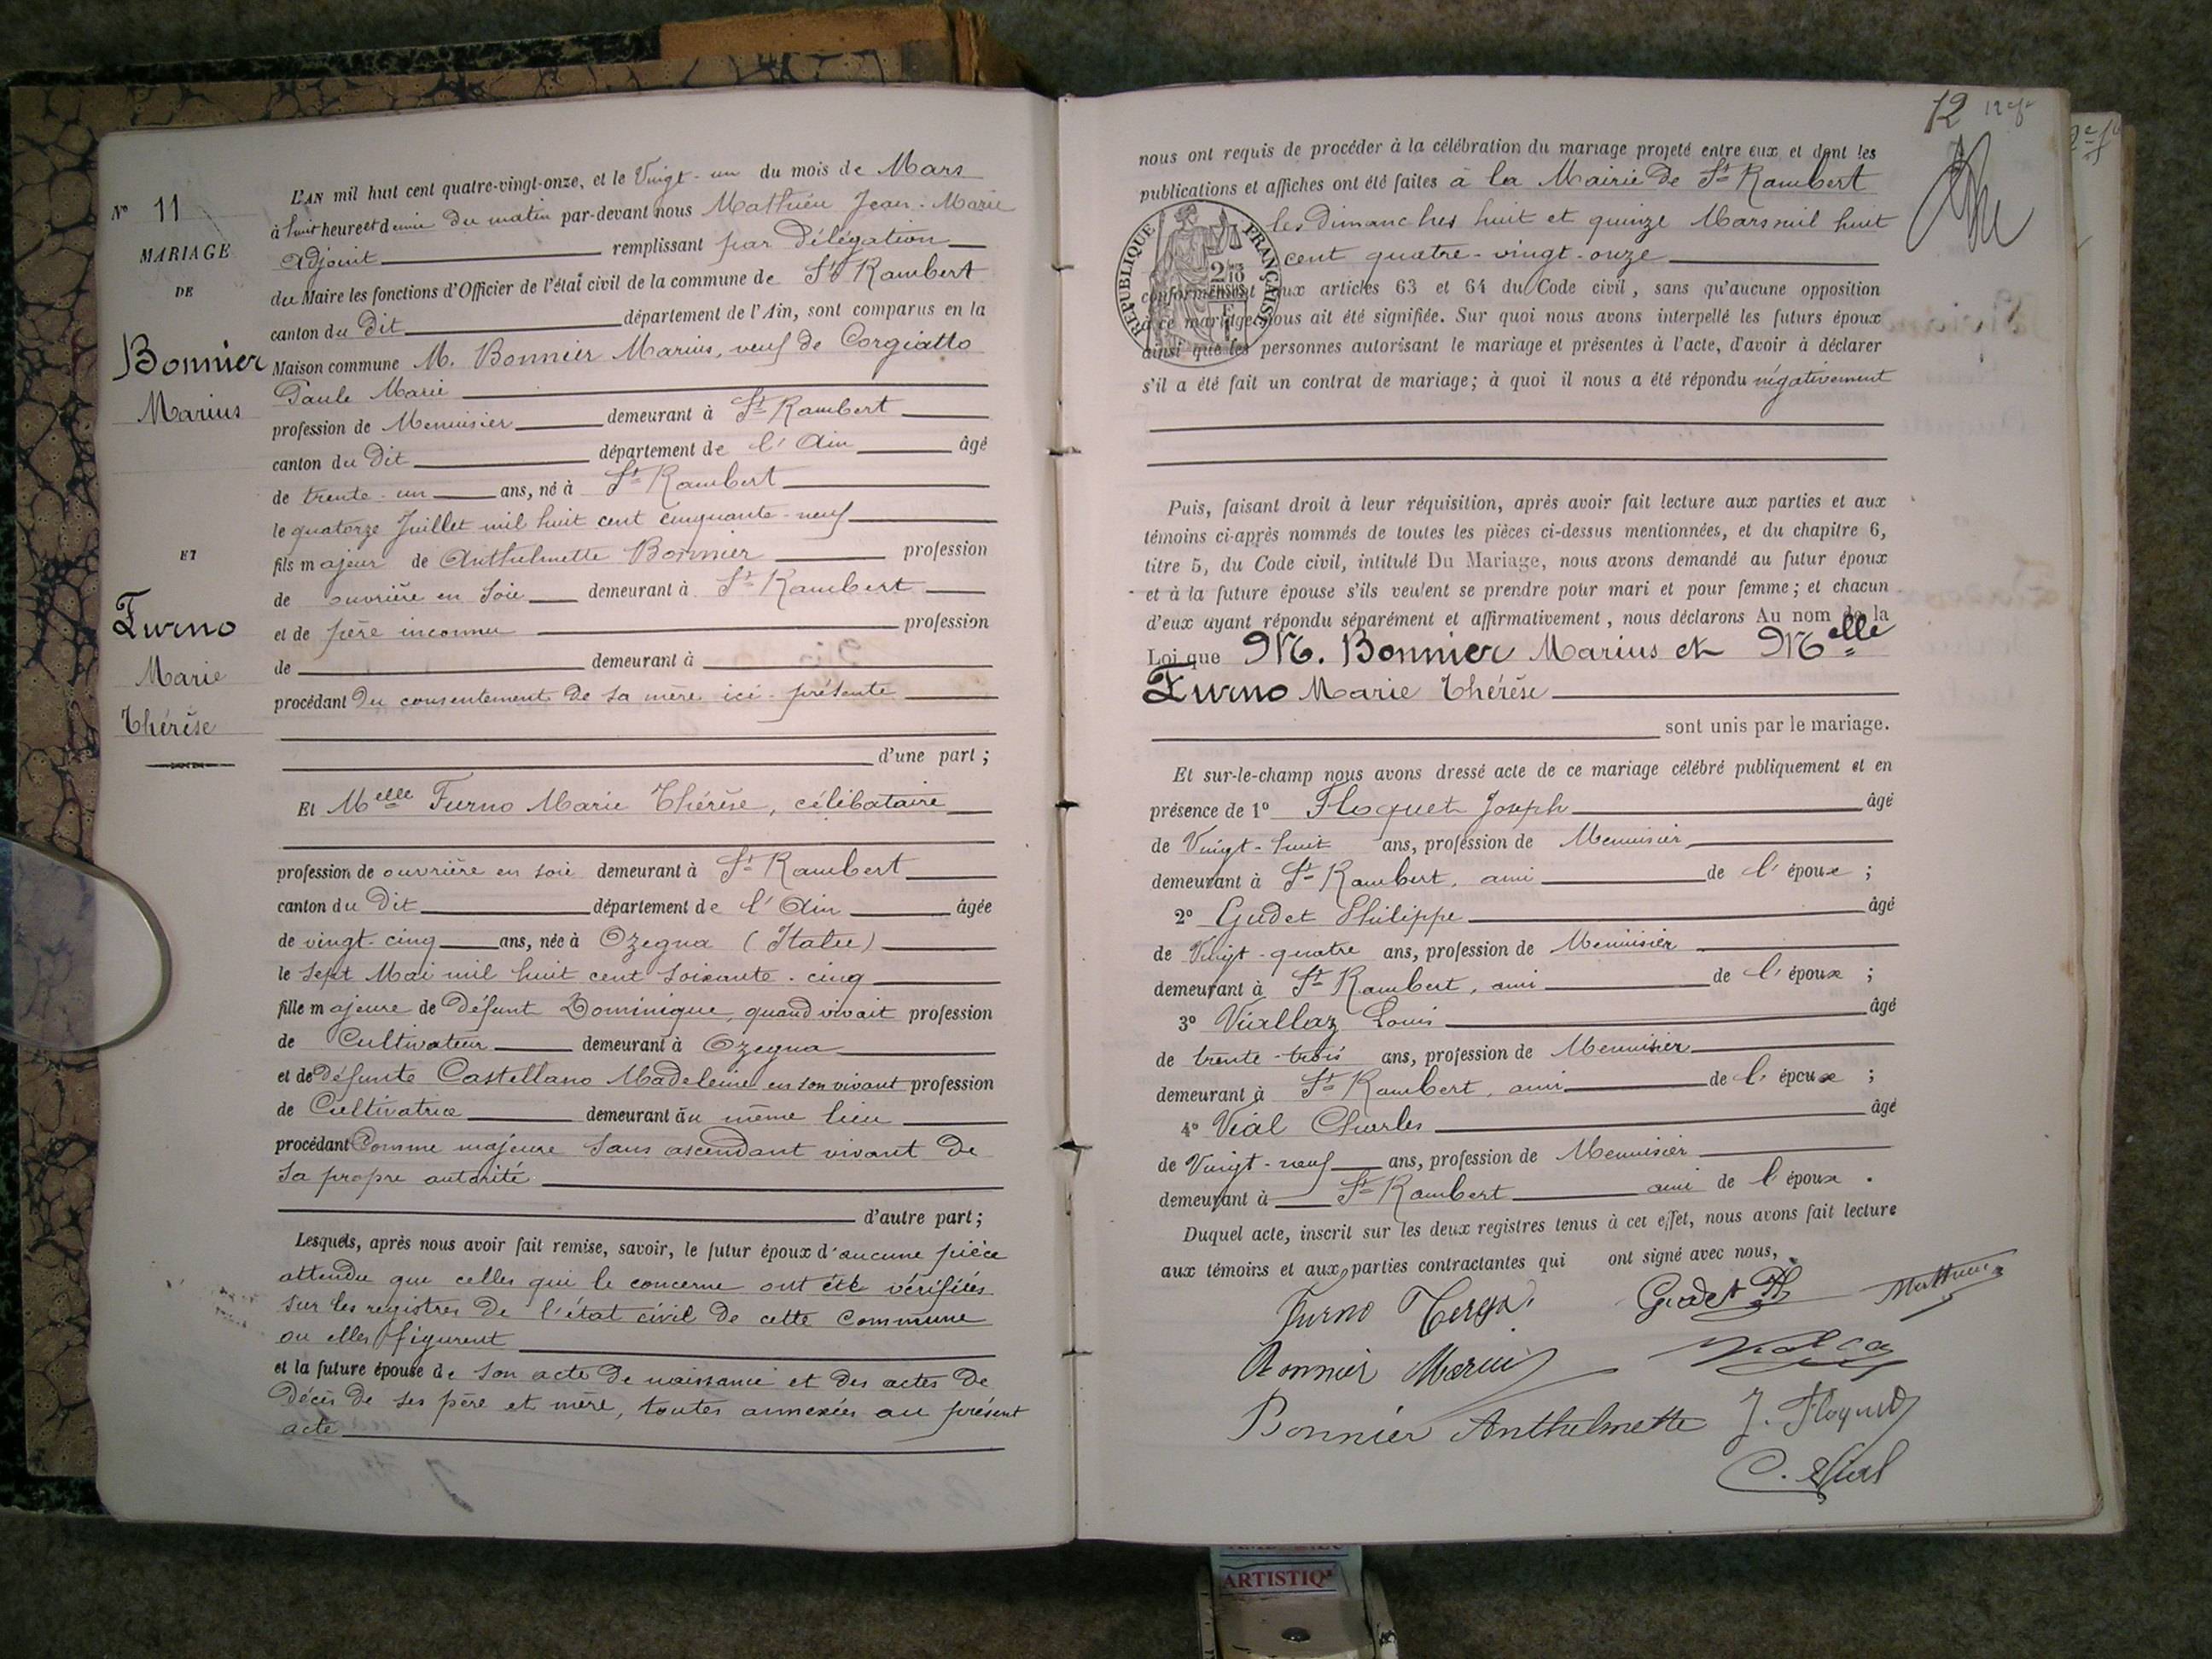 N° 11
MARIAGE
DE
Bonnier
Marius
ET
Furno
Marie
Thérèse
L'AN mil huit cent quatre-vingt-onze, et le Vingt-un du mois de Mars
à huit heure et demie du matin par-devant nous Mathieu Jean-Marie
adjoint remplissant par Délégation
du Maire les fonctions d'Officier de l'état civil de la commune de St Rambert
canton du dit département de l'Ain, sont comparus en la
Maison commune M. Bonnier Marius, veuf de Corgiatto
Paule Marie
profession de Menuisier demeurant à St Rambert
canton du dit département de l'Ain âgé
de trente-un ans, né à St Rambert
le quatorze Juillet mil huit cent cinquante-neuf
fils majeur de Anthelmette Bonnier profession
de ouvrière en soie demeurant à St Rambert
et de père inconnu profession
de demeurant à
procédant du consentement de sa mère ici-présente
d'une part;
Et Melle Furno Marie Thérèse, célibataire
profession de ouvrière en soie demeurant à St Rambert
canton du dit département de l'Ain âgée
de vingt-cinq ans, née à Ozegna (Italie)
le sept Mai mil huit cent soixante-cinq
fille majeure de défunt Dominique, quand vivait profession
de Cultivateur demeurant à Ozegna
et de défunte Castellano Madeleine en son vivant profession
de Cultivatrice demeurant au même lieu
procédant Comme majeure sans ascendant vivant de
sa propre autorité
d'autre part;
Lesquels, après nous avoir fait remise, savoir, le futur époux d'aucune pièce
attendu que celles qui le concerne ont été vérifiées
sur les registres de l'état civil de cette Commune
ou elles figurent
et la future épouse de son acte de naissance et des actes de
décès de ses père et mère, toutes annexées au présent
acte
12
nous ont requis de procéder à la célébration du mariage projeté entre eux et dont les
publications et affiches ont été faites à la Mairie de St Rambert
les Dimanches huit et quinze Mars mil huit
cent quatre-vingt-onze
RÉPUBLIQUE FRANÇAISE
conformément aux articles 63 et 64 du Code civil, sans qu'aucune opposition
à ce mariage nous ait été signifiée. Sur quoi nous avons interpellé les futurs époux
ainsi que les personnes autorisant le mariage et présentes à l'acte, d'avoir à déclarer
s'il a été fait un contrat de mariage; à quoi il nous a été répondu négativement
Puis, faisant droit à leur réquisition, après avoir fait lecture aux parties et aux
témoins ci-après nommés de toutes les pièces ci-dessus mentionnées, et du chapitre 6,
titre 5, du Code civil, intitulé Du Mariage, nous avons demandé au futur époux
et à la future épouse s'ils veulent se prendre pour mari et pour femme; et chacun
d'eux ayant répondu séparément et affirmativement, nous déclarons Au nom de la
Loi que M. Bonnier Marius et Melle
Furno Marie Thérèse
sont unis par le mariage.
Et sur-le-champ nous avons dressé acte de ce mariage célébré publiquement et en
présence de 1° Floquet Joseph âgé
de Vingt-huit ans, profession de Menuisier
demeurant à St Rambert, ami de l'époux;
2° Gudet Philippe âgé
de Vingt-quatre ans, profession de Menuisier
demeurant à St Rambert, ami de l'époux;
3° Viallaz Louis âgé
de trente-trois ans, profession de Menuisier
demeurant à St Rambert, ami de l'époux;
4° Vial Charles âgé
de Vingt-neuf ans, profession de Menuisier
demeurant à St Rambert ami de l'époux.
Duquel acte, inscrit sur les deux registres tenus à cet effet, nous avons fait lecture
aux témoins et aux parties contractantes qui ont signé avec nous,
Furno Gudet Ph Mathieu
Bonnier Marius
Bonnier Anthelmette J. Floquet
C. Vial
ARTISTIQ